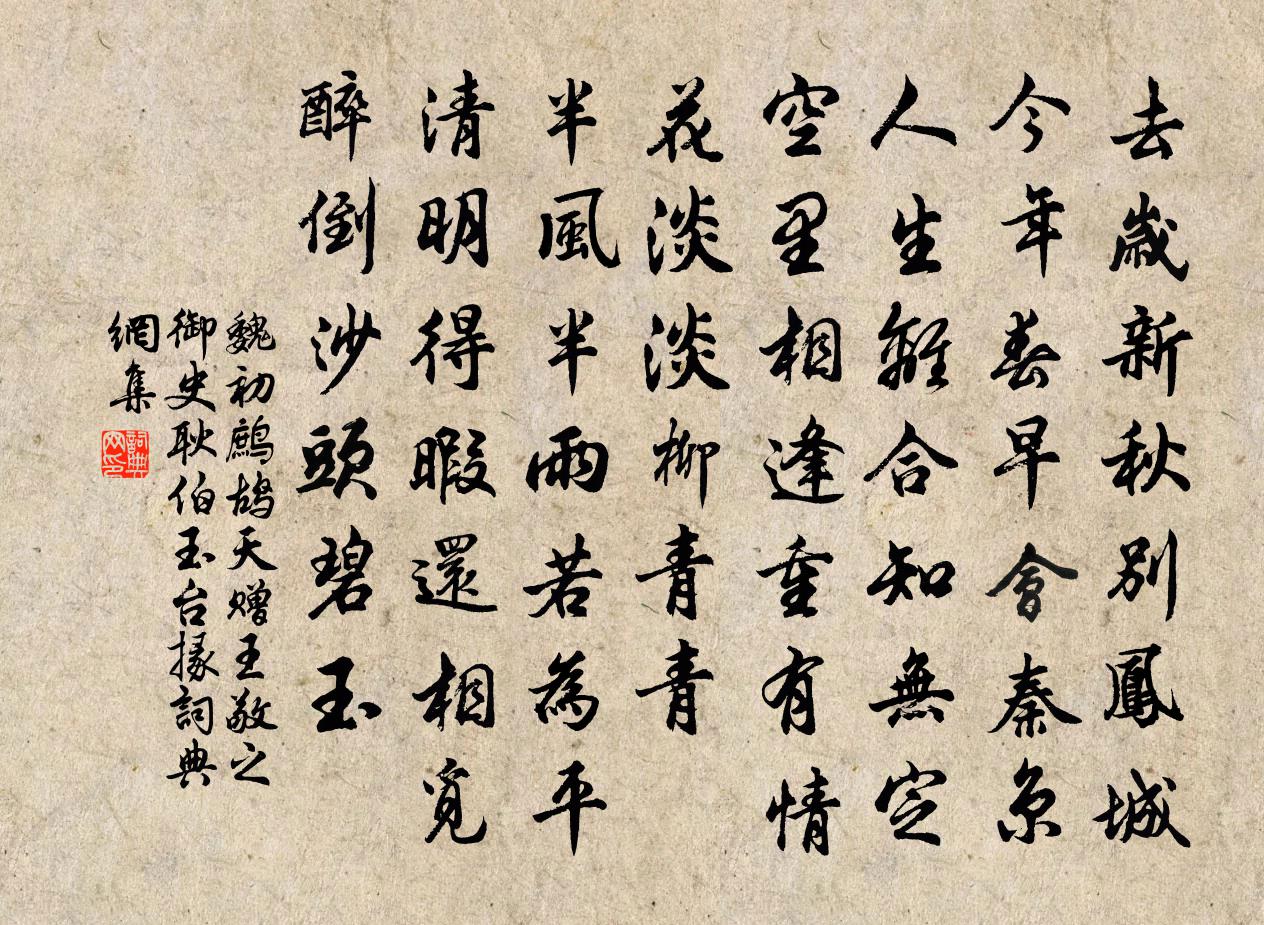 去歲新秋別鳳城
今年春早會秦京
人生離合知無定
空里相逢重有情
花淡淡柳青青
半風半雨若為平
清明得暇還相覓
醉倒沙頭碧玉
魏初鷓鴣天贈王敬之
御史耿伯玉台掾詞典
網集
詞典
网印